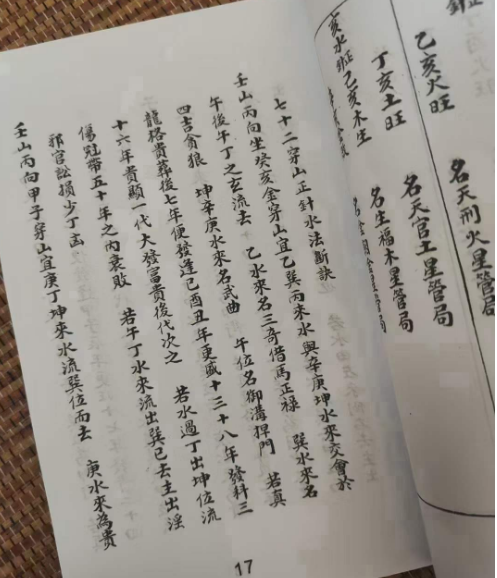 乙亥火旺 名天刑火星管局
丁亥土旺 名天官土星管局
亥水旺乙亥木生 名生福木星管局
七十二穿山正針水法斷訣
壬山丙向坐癸亥金穿山宜乙巽丙未水與辛庚坤水來交會於
午後午丁之玄流去 乙水來名三奇借馬正祿 巽水來名
四吉貪狼 坤辛庚水來名武曲 午位名御溝捍門 若真
龍格貴葬後七年便發逢己酉丑年更盛十三十八年發科三
十六年貴顯一代大發富貴後代次之 若水過丁出坤位流
傷冠帶五十年之內衰敗 若午丁水來流出巽巳去主出淫
邪官訟損少丁凶
壬山丙向甲子穿山宜庚丁坤來水流巽位而去 庚水來為貴
17